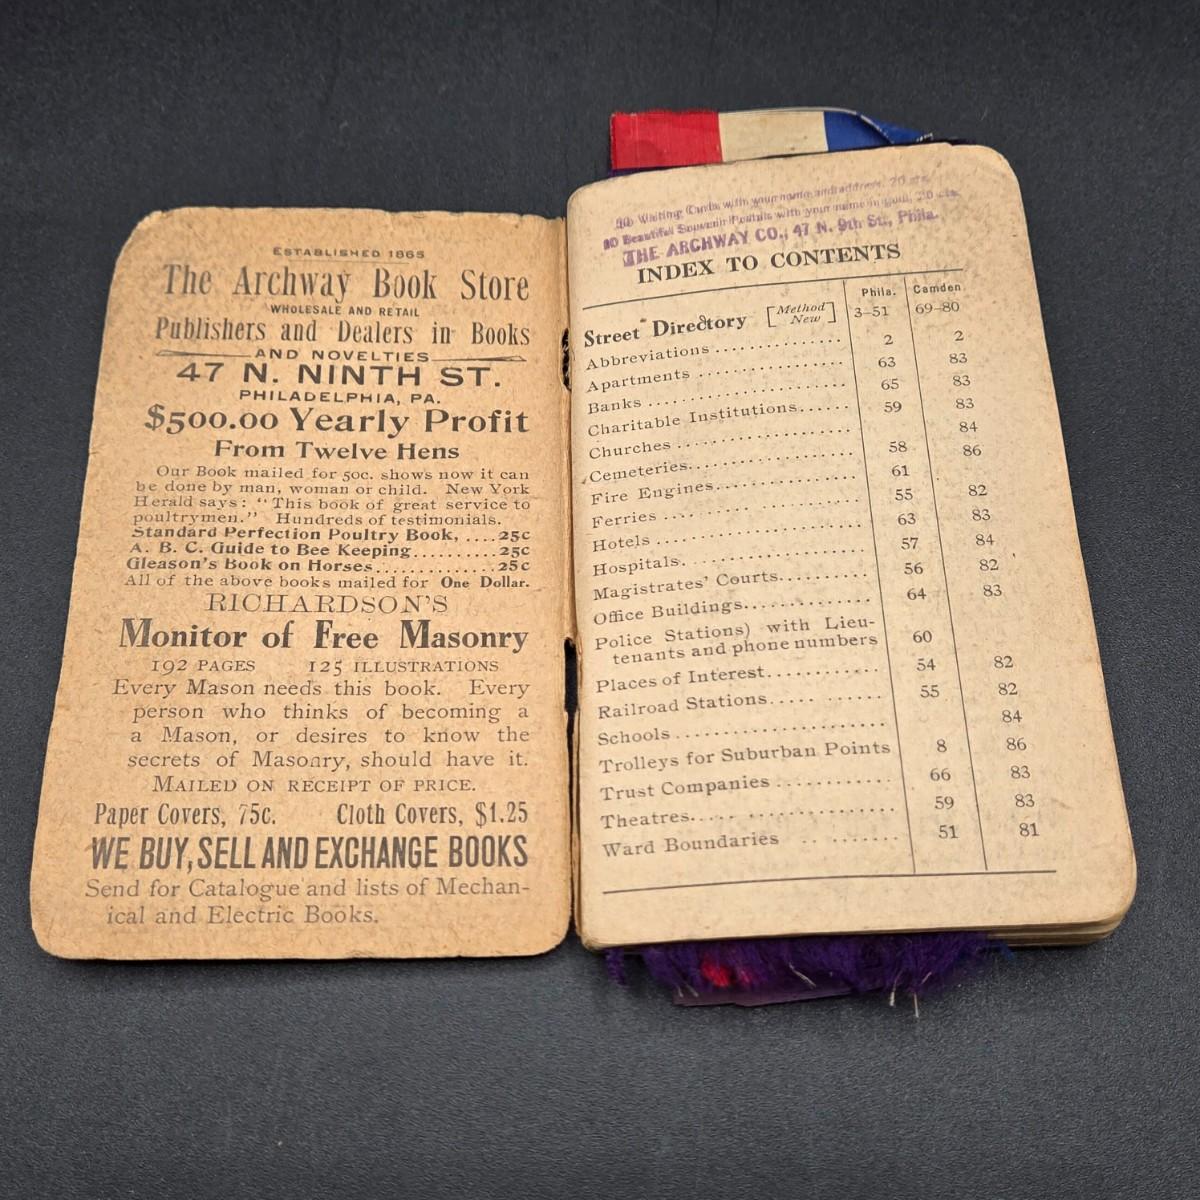 ESTABLISHED 1865
The Archway Book Store
WHOLESALE AND RETAIL
Publishers and Dealers in Books
AND NOVELTIES
47 N. NINTH ST.
PHILADELPHIA, PA.
$500.00 Yearly Profit
From Twelve Hens
Our Book mailed for 50c. shows now it can
be done by man, woman or child. New York
Herald says: "This book of great service to
poultrymen." Hundreds of testimonials.
Standard Perfection Poultry Book, ....25c
A. B. C. Guide to Bee Keeping..........25c
Gleason's Book on Horses...............25c
All of the above books mailed for One Dollar.
RICHARDSON'S
Monitor of Free Masonry
192 PAGES 125 ILLUSTRATIONS
Every Mason needs this book. Every
person who thinks of becoming a
a Mason, or desires to know the
secrets of Masonry, should have it.
MAILED ON RECEIPT OF PRICE.
Paper Covers, 75c. Cloth Covers, $1.25
WE BUY, SELL AND EXCHANGE BOOKS
Send for Catalogue and lists of Mechan-
ical and Electric Books.
Visiting Cards with your name and address, 20 cts.
Beautiful Souvenir Postals with your name in Gold, 20 cts.
THE ARCHWAY CO., 47 N. 9th St., Phila.
INDEX TO CONTENTS
Phila. Camden
Street Directory [Method New] 3-51 69-80
Abbreviations .............. 2 2
Apartments ................ 63 83
Banks ..................... 65 83
Charitable Institutions...... 59 83
Churches .................. 84
Cemeteries................. 58 86
Fire Engines............... 61
Ferries ................... 55 82
Hotels .................... 63 83
Hospitals.................. 57 84
Magistrates' Courts......... 56 82
Office Buildings............ 64 83
Police Stations) with Lieu-
tenants and phone numbers 60
Places of Interest........... 54 82
Railroad Stations..... ...... 55 82
Schools ................... 84
Trolleys for Suburban Points 8 86
Trust Companies ........... 66 83
Theatres..... ............. 59 83
Ward Boundaries .. ........ 51 81